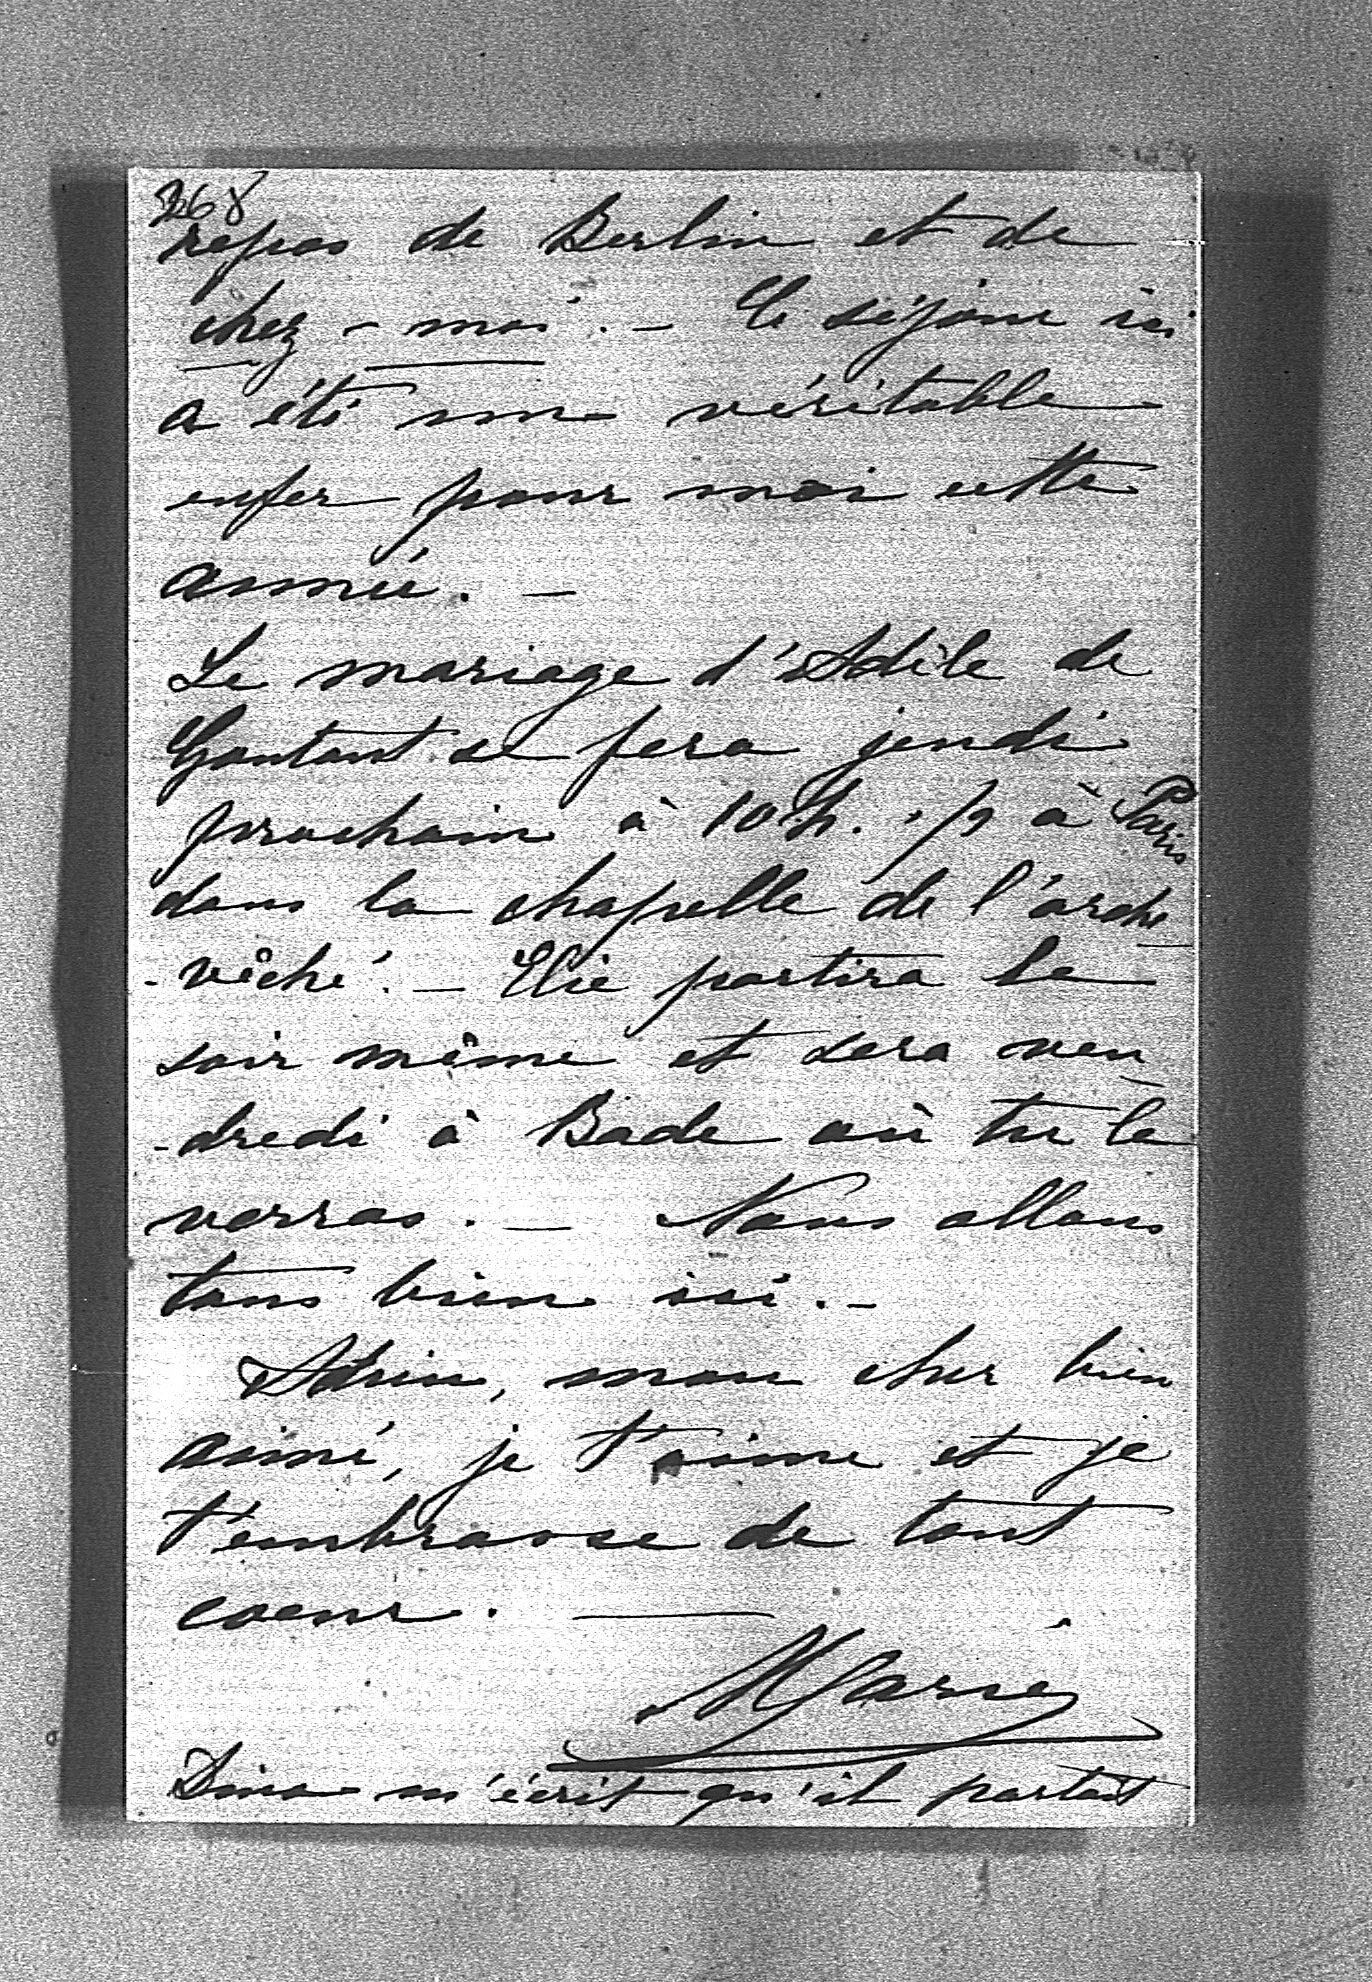 268
repos de Berlin et de
chez-moi. - Ce séjour ici
a été un véritable
enfer pour moi cette
année. -
Le mariage d'Adèle de
Gontaut se fera jeudi
prochain à 10 h. 1/2 à Paris
dans la chapelle de l'arche
-vêché. - Elie partira le
soir même et sera ven
-dredi à Bade où tu le
verras. - Nous allons
tous bien ici. -
Adieu, mon cher bien
aimé, je t'aime et je
t'embrasse de tout
coeur. -
Marie
m'écrit qu'il partait